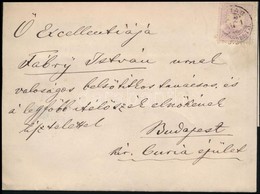 Ő Excellentiája
Fábry István urnak
valoságos belső titkos tanácsos, és
a legfőbb itélőszék elnökének
tisztelettel
Budapest
kir. Curia épület